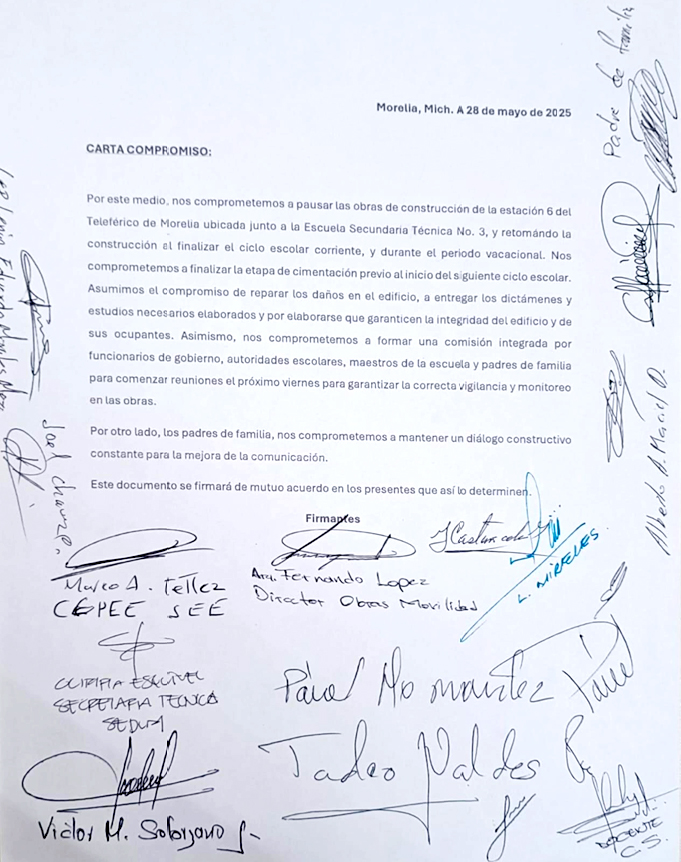 Morelia, Mich. A 28 de mayo de 2025
CARTA COMPROMISO:
Por este medio, nos comprometemos a pausar las obras de construcción de la estación 6 del
Teleférico de Morelia ubicada junto a la Escuela Secundaria Técnica No. 3, y retomándo la
construcción al finalizar el ciclo escolar corriente, y durante el periodo vacacional. Nos
comprometemos a finalizar la etapa de cimentación previo al inicio del siguiente ciclo escolar.
Asumimos el compromiso de reparar los daños en el edificio, a entregar los dictámenes y
estudios necesarios elaborados y por elaborarse que garanticen la integridad del edificio y de
sus ocupantes. Asimismo, nos comprometemos a formar una comisión integrada por
funcionarios de gobierno, autoridades escolares, maestros de la escuela y padres de familia
para comenzar reuniones el próximo viernes para garantizar la correcta vigilancia y monitoreo
en las obras.
Por otro lado, los padres de familia, nos comprometemos a mantener un diálogo constructivo
constante para la mejora de la comunicación.
Este documento se firmará de mutuo acuerdo en los presentes que así lo determinen.
Firmantes
Marco A. Tellez
CEPEE SEE
Arq. Fernando Lopez
Director Obras Movilidad
L. MIRELES
ESQUIVEL
SECRETARIA TECNICA
SEDUM
Tadeo Valdes
Victor M. Solorzano
DOCENTE
C.S.
Padre de familia
Alberto A. Maciel O.
Joel Chavez
Eduardo